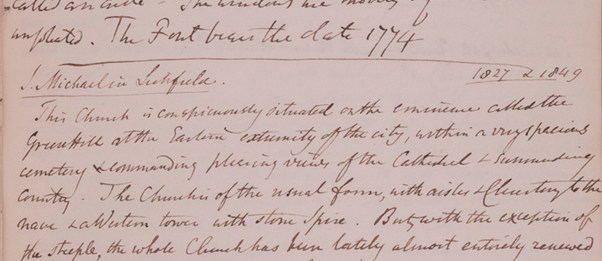 called an aisle - The windows are mostly
unpleated. The Font bears the date 1774
S. Michael in Lichfield. 1827 & 1849
This Church is conspicuously situated on the eminence called the
Greenhill at the Eastern extremity of the city, within a very spacious
cemetery & commanding pleasing views of the Cathedral & surrounding
Country. The Church is of the usual form, with aisles & Clerestory to the
nave & a Western tower with stone Spire. But, with the exception of
the steeple, the whole Church has been lately almost entirely renewed